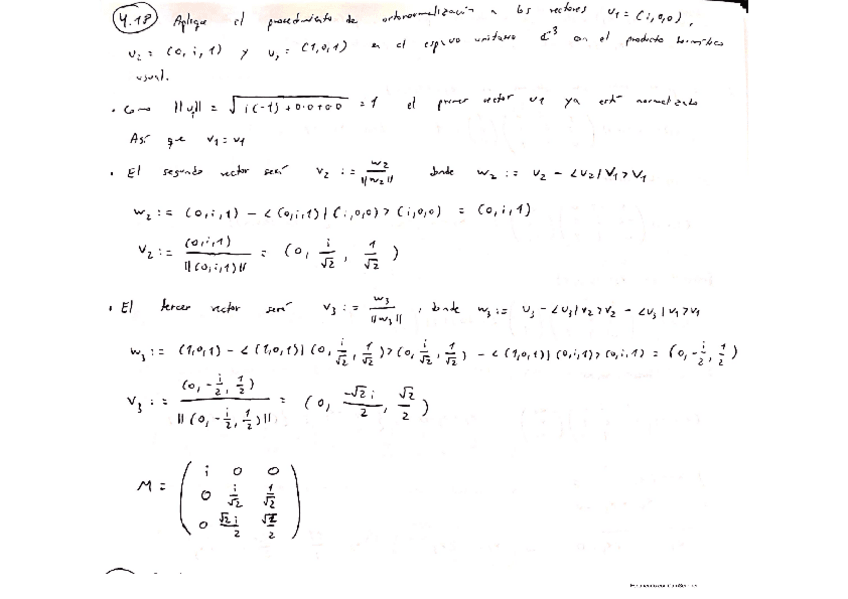 4.18 Aplique el procedimiento de ortonormalización a los vectores u₁ = (i,0,0),
u₂ = (0,i,1) y u₃ = (1,0,1) en el espacio unitario ℂ³ con el producto hermítico
usual.
· Como ||u₁|| = √(i(-i) + 0·0 + 0·0) = 1 el primer vector u1 ya está normalizado
Así que v₁ = u₁
· El segundo vector será v₂ := w₂/||w₂|| donde w₂ := u₂ - <u₂|v₁>v₁
w₂ := (0,i,1) - <(0,i,1)|(i,0,0)>(i,0,0) = (0,i,1)
v₂ := (0,i,1)/||(0,i,1)|| = (0, i/√2, 1/√2)
· El tercer vector será v₃ := w₃/||w₃||, donde w₃ := u₃ - <u₃|v₂>v₂ - <u₃|v₁>v₁
w₃ := (1,0,1) - <(1,0,1)|(0, i/√2, 1/√2)>(0, i/√2, 1/√2) - <(1,0,1)|(0,i,1)>(0,i,1) = (0, -i/2, 1/2)
v₃ := (0, -i/2, 1/2)/||(0, -i/2, 1/2)|| = (0, -√2i/2, √2/2)
M = (i 0 0
0 i/√2 1/√2
0 √2i/2 √2/2)